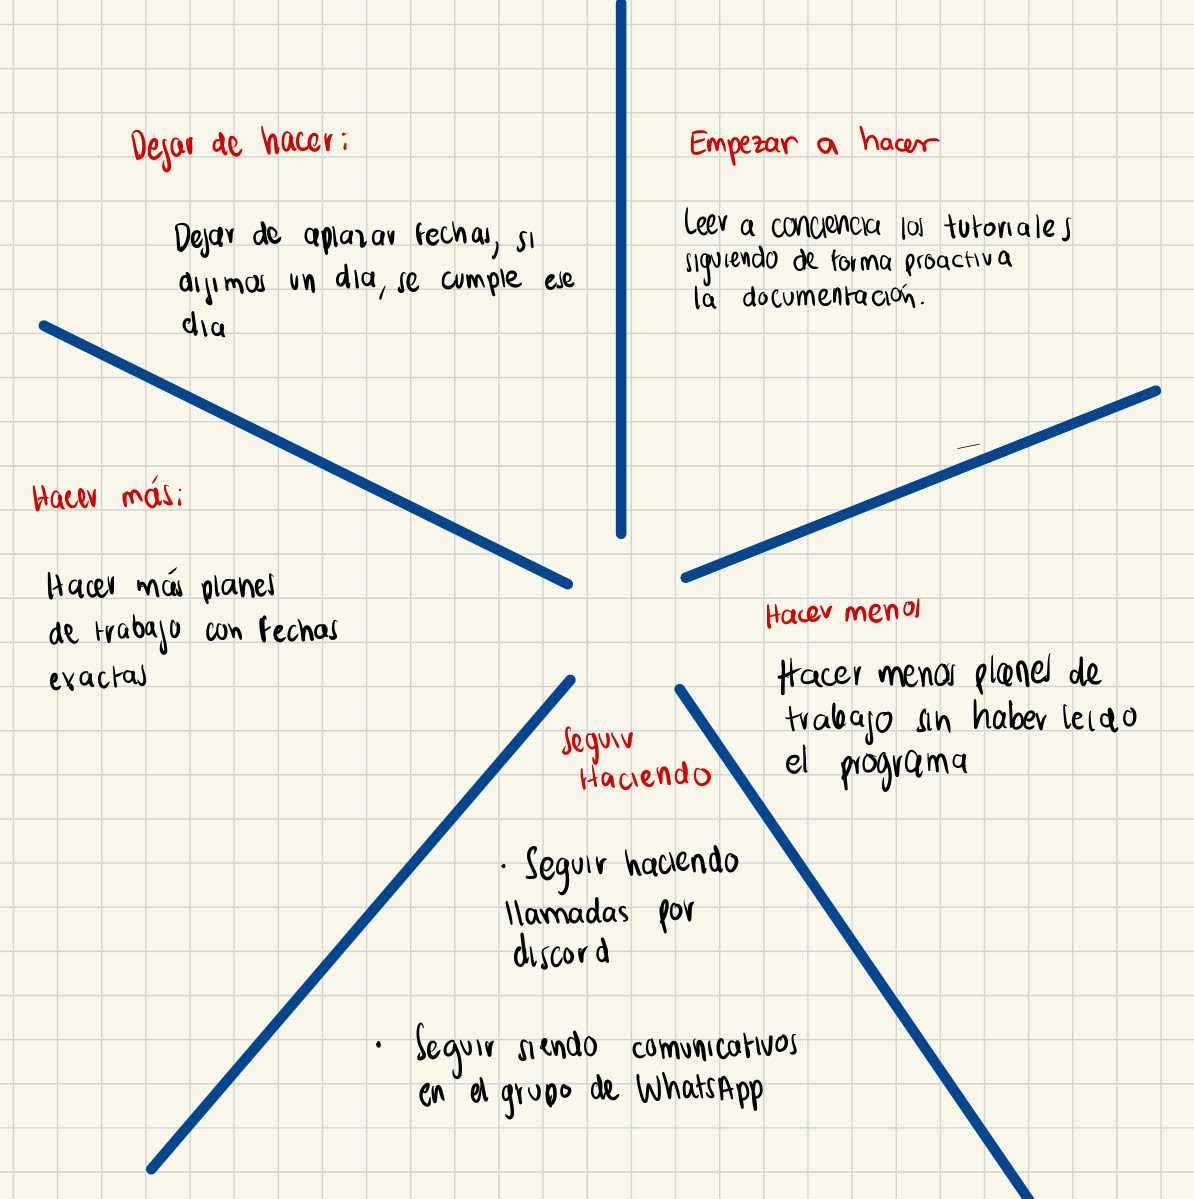 Dejar de hacer:
Dejar de aplazar fechas, si
dijimos un dia, se cumple ese
dia
Empezar a hacer
Leer a conciencia los tutoriales
siguiendo de forma proactiva
la documentación.
Hacer más:
Hacer más planes
de trabajo con fechas
exactas
Hacer menos
Hacer menos planes de
trabajo sin haber leido
el programa
Seguir
Haciendo
· Seguir haciendo
llamadas por
discord
· Seguir siendo comunicativos
en el grupo de WhatsApp